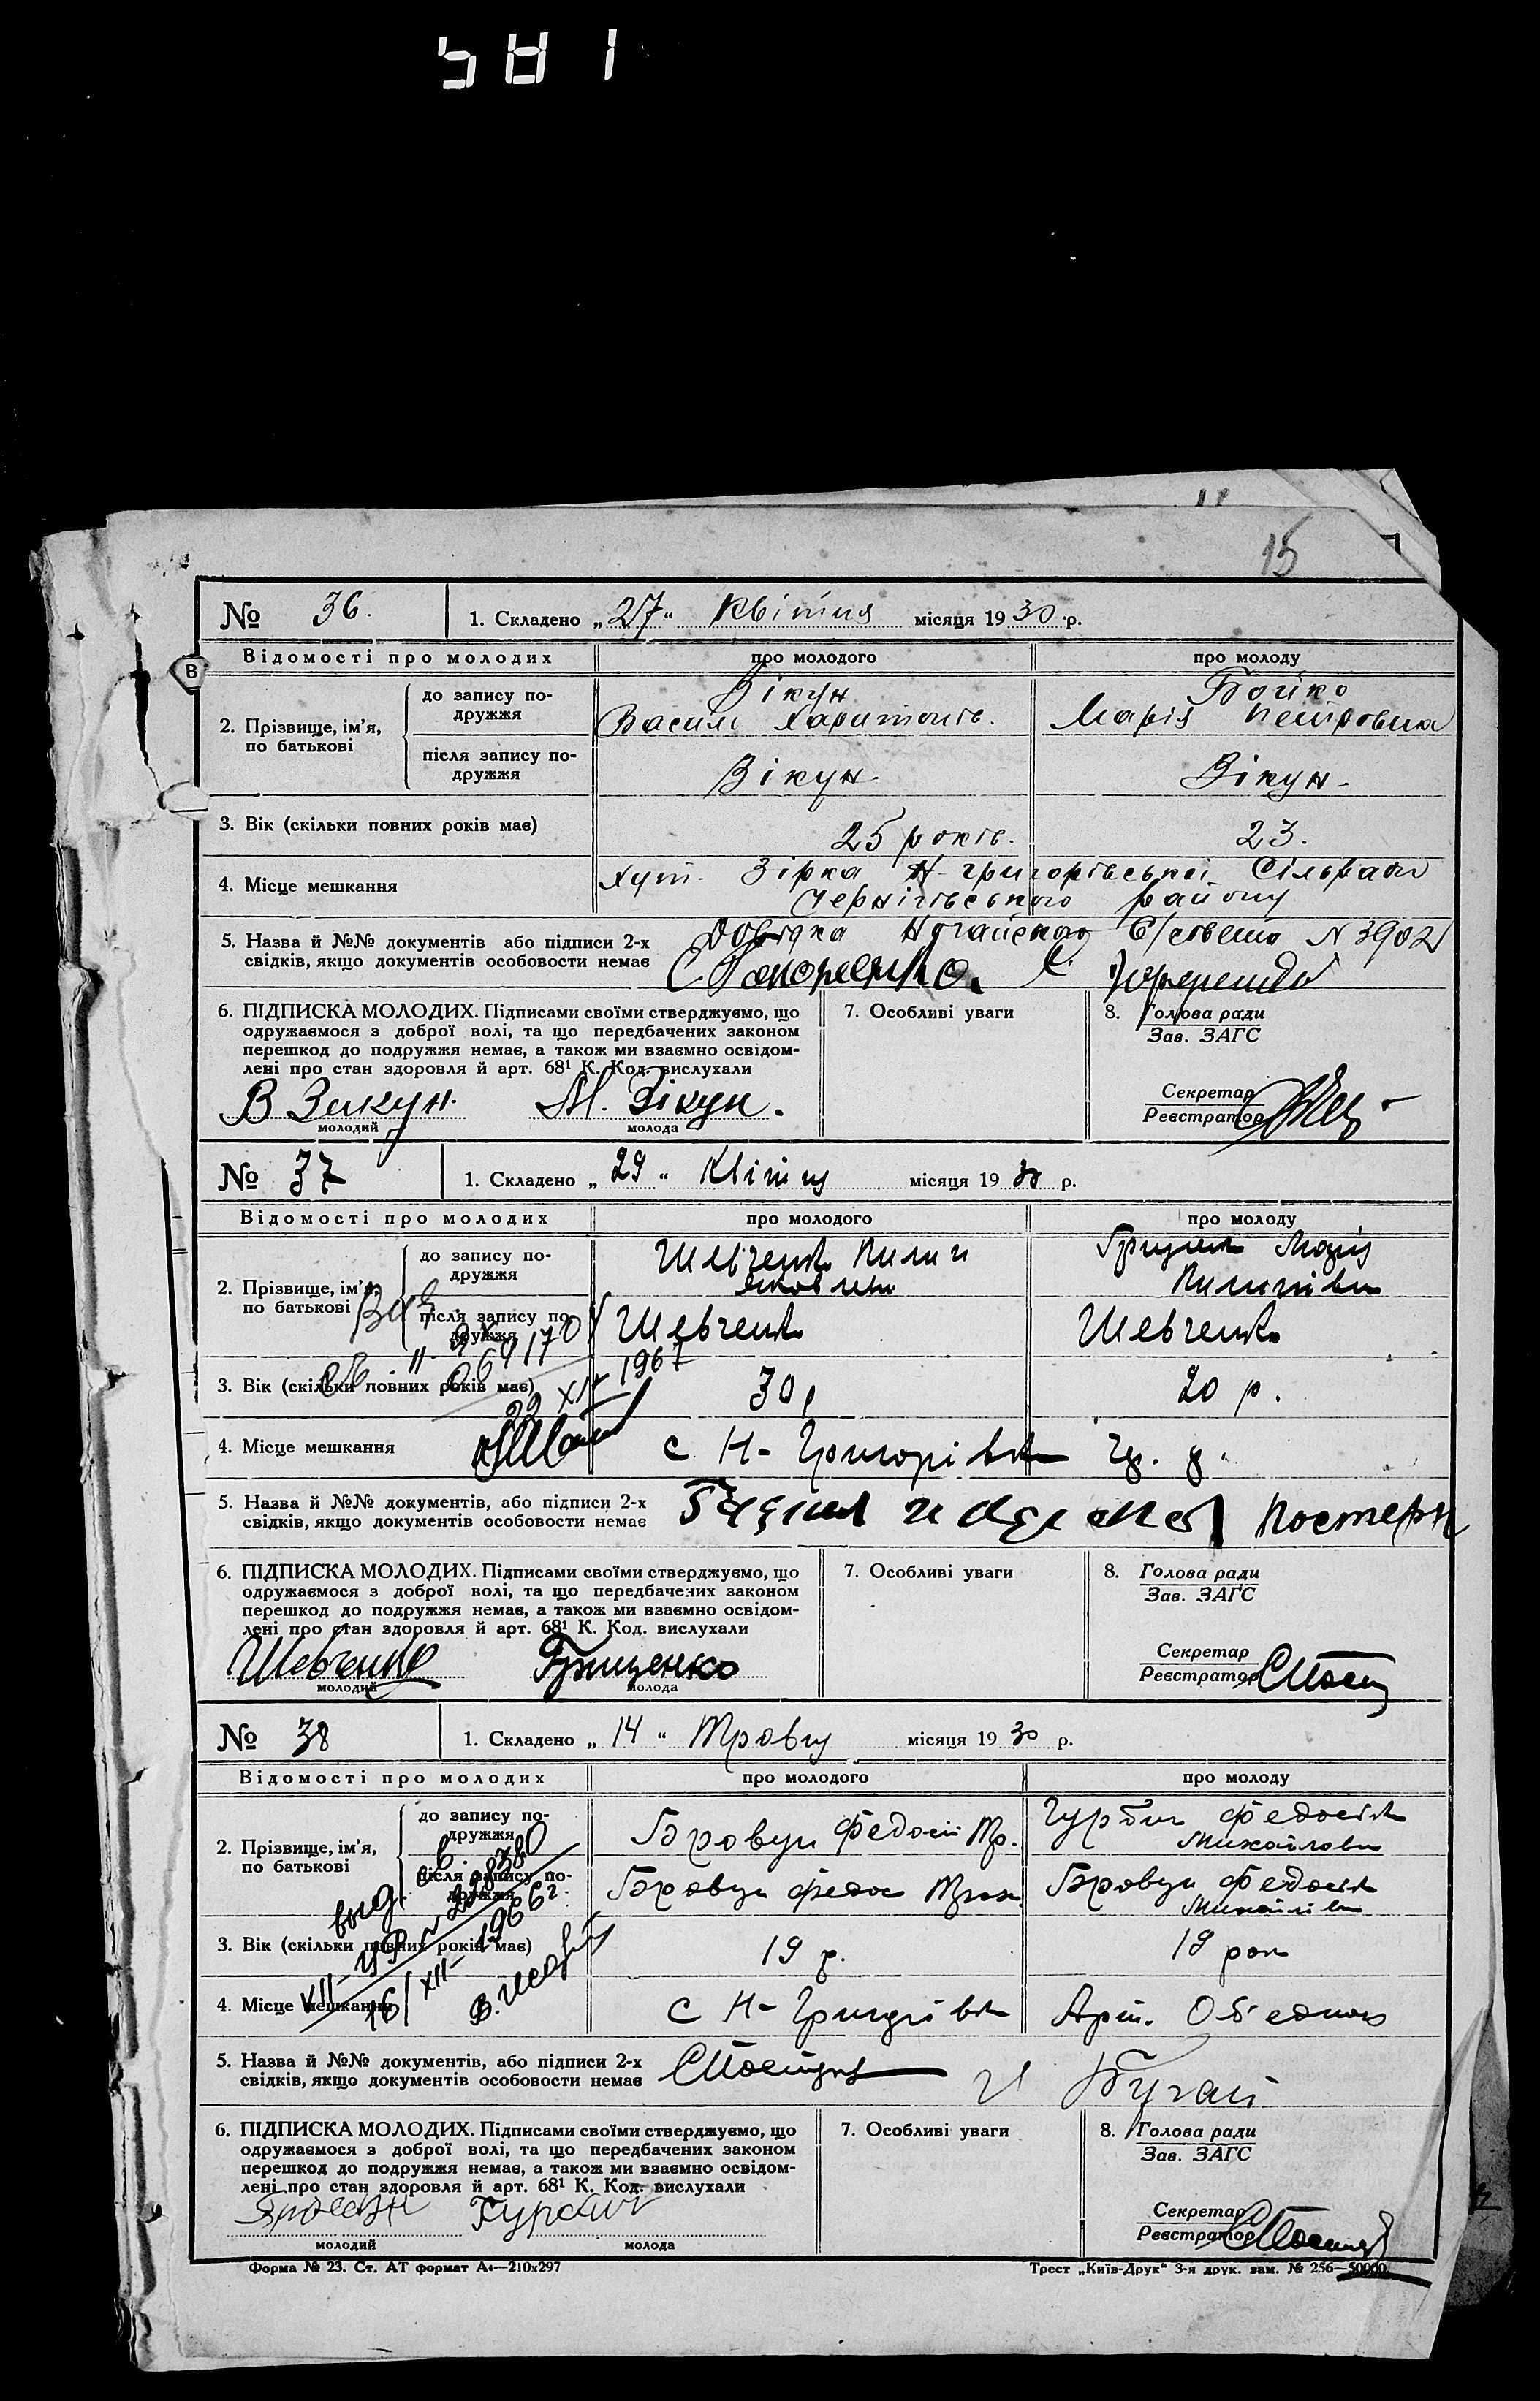 581
15
№ 36. 1. Складено „27“ Квітня місяця 1930 р.
Відомості про молодих про молодого про молоду
2. Прізвище, ім’я, по батькові
до запису подружжя
Вікун
Василь Харитонів.
Бойко
Марія Петровна
після запису по-
дружжя
Вікун.
Вікун.
3. Вік (скільки повних років має) 25 років. 23.
4. Місце мешкання хут. Зірка Н-григорівської Сільради
Чернігівського району
5. Назва й №№ документів або підписи 2-х
свідків, якщо документів особовости немає
Довідка Ногайского С/совета N 3902
6. ПІДПИСКА МОЛОДИХ. Підписами своїми стверджуємо, що
одружаємося з доброї волі, та що передбачених законом
перешкод до подружжя немає, а також ми взаємно освідом-
лені про стан здоровля й арт. 68¹ К. Код. вислухали
В Викун. М. Вікун.
молодий молода
7. Особливі уваги
8. Голова ради
Зав. ЗАГС
Секретар
Реєстратор
№ 37 1. Складено „29“ Квітня місяця 1930 р.
Відомості про молодих про молодого про молоду
2. Прізвище, ім’я,
по батькові
до запису по-
дружжя
Шевченко Пилип
Яковлев
Грищенко Марія
Пилипівна
після запису по-
дружжя
Шевченко
Шевченко
3. Вік (скільки повних років має) 30 р 20 р.
1967
4. Місце мешкання с Н-Григорівка
5. Назва й №№ документів, або підписи 2-х
свідків, якщо документів особовости немає
6. ПІДПИСКА МОЛОДИХ. Підписами своїми стверджуємо, що
одружаємося з доброї волі, та що передбачених законом
перешкод до подружжя немає, а також ми взаємно освідом-
лені про стан здоровля й арт. 68¹ К. Код. вислухали
Шевченко Грищенко
молодий молода
7. Особливі уваги
8. Голова ради
Зав. ЗАГС
Секретар
Реєстратор
№ 38 1. Складено „14“ Травня місяця 1930 р.
Відомості про молодих про молодого про молоду
2. Прізвище, ім’я,
по батькові
до запису по-
дружжя
Бровун Федосій Тр.
Федосія
Михайловна
після запису по-
дружжя
Бровун Федос
Бровун Федосія
Михайлівна
выд. св.
16/XII-1966г.
3. Вік (скільки повних років має) 19 р. 19 рок
4. Місце мешкання с Н-Григорівка Арт.
5. Назва й №№ документів, або підписи 2-х
свідків, якщо документів особовости немає
и Бугай
6. ПІДПИСКА МОЛОДИХ. Підписами своїми стверджуємо, що
одружаємося з доброї волі, та що передбачених законом
перешкод до подружжя немає, а також ми взаємно освідом-
лені про стан здоровля й арт. 68¹ К. Код. вислухали
молодий молода
7. Особливі уваги
8. Голова ради
Зав. ЗАГС
Секретар
Реєстратор
Форма № 23. Ст. АТ формат А₄—210х297
Трест „Київ-Друк“ 3-я друк. зам. № 256—50000